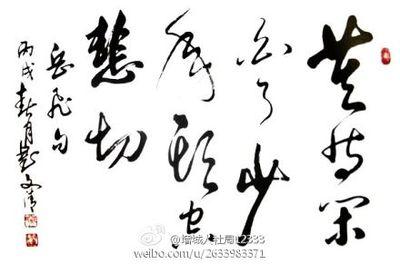 莫等闲
白了少
年头空
悲切
岳飞句
丙戌春月
@增城人社局12333
weibo.com/u/2633983371